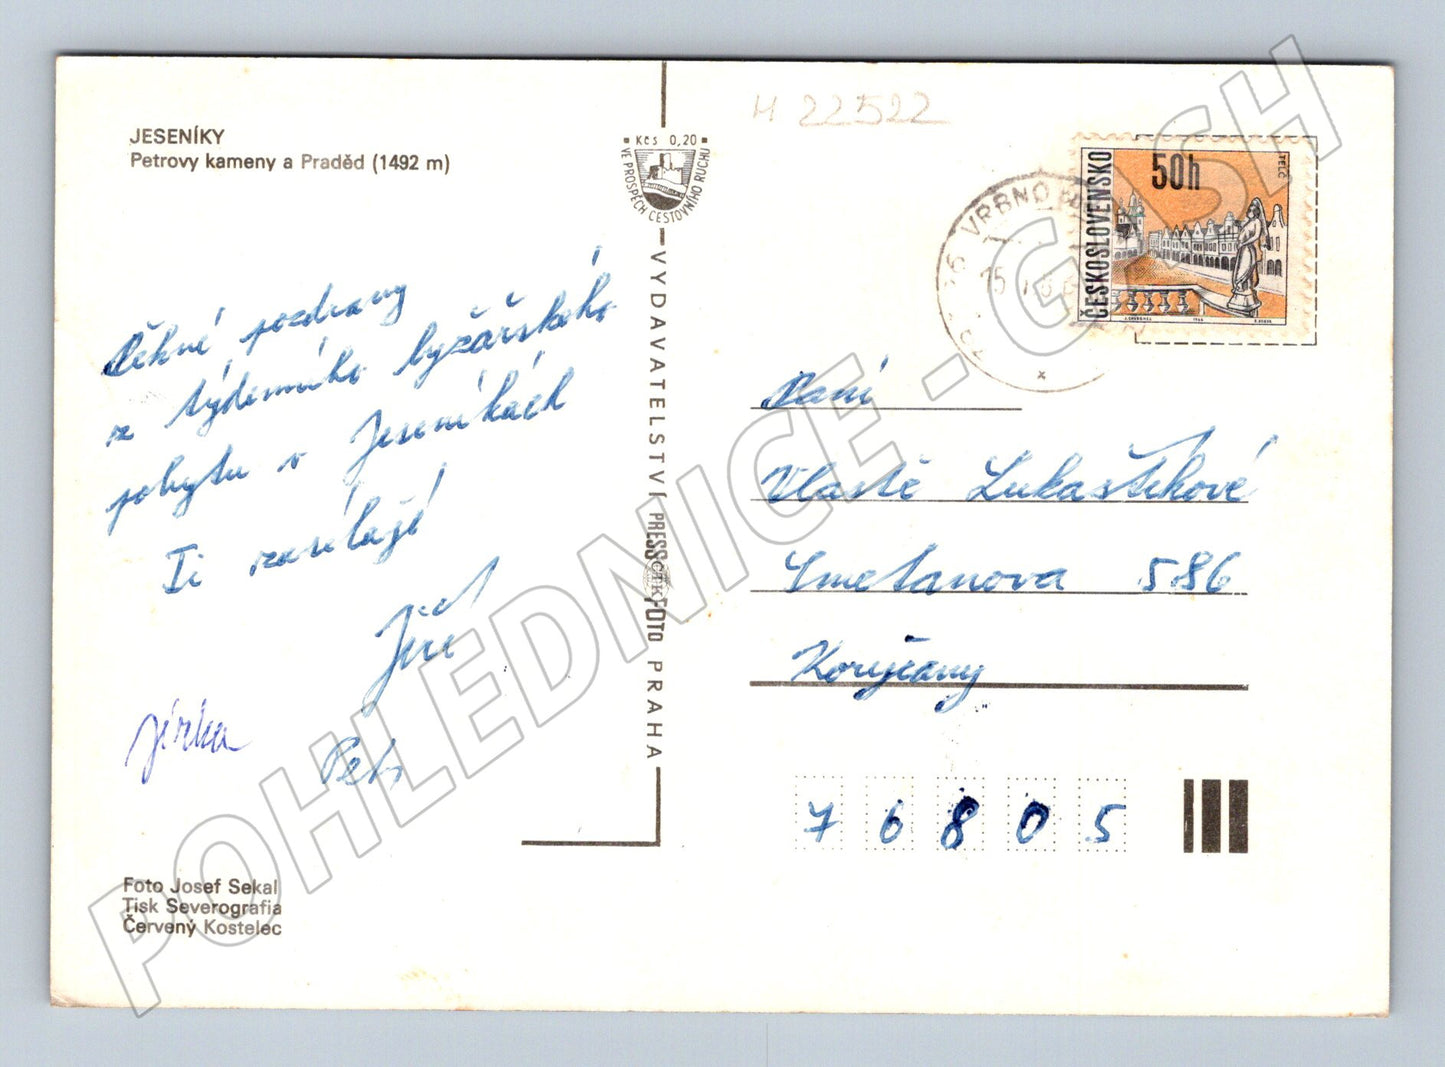 JESENÍKY
Petrovy kameny a Praděd (1492 m)
Pěkné pozdravy
z týdenního lyžařského
pobytu v Jeseníkách
Ti zasílají
Jiří
Jirka
Petr
Foto Josef Sekal
Tisk Severografia
Červený Kostelec
Kčs 0,20
VE PROSPĚCH CESTOVNÍHO RUCHU
VYDAVATELSTVÍ PRESSFOTO PRAHA
ČTK
H 22522
VRBNO
15
ČESKOSLOVENSKO
50h
TELČ
Paní
Vlastě Lukaštíkové
Smetanova 586
Koryčany
76805
POHLEDNICE - GASH